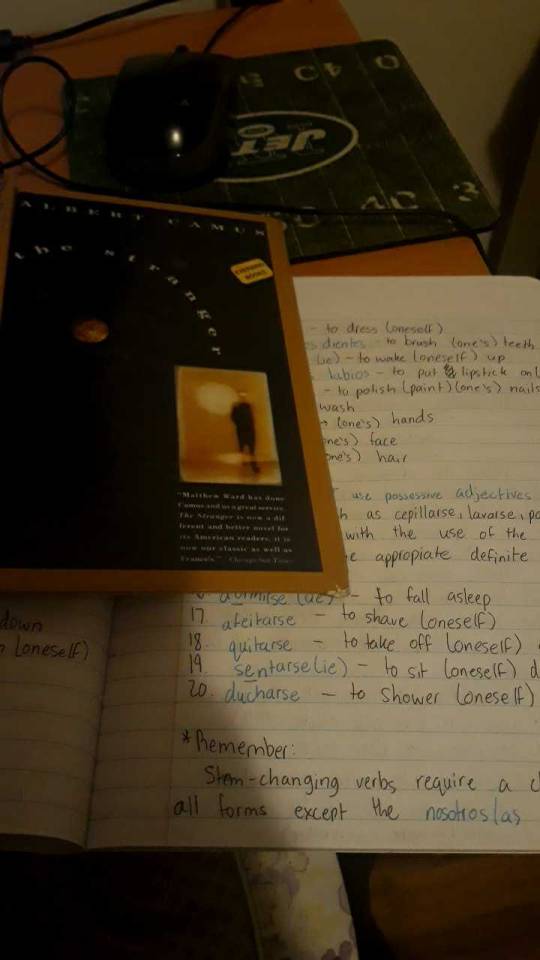 JETS
ALBERT CAMUS
the stranger
EXPANDED BOOKS
"Matthew Ward has done
Camus and us a great service.
The Stranger is now a dif-
ferent and better novel for
its American readers; it is
now our classic as well as
France's." Chicago Sun-Times
- to dress (oneself)
dientes - to brush (one's) teeth
(ie) - to wake (oneself) up
labios - to put lipstick on
- to polish (paint) (one's) nails
wash
(one's) hands
(one's) face
(one's) hair
use possessive adjectives
as cepillarse, lavarse,
with the use of the
appropiate definite
dormirse (ue) - to fall asleep
17. afeitarse - to shave (oneself)
18. quitarse - to take off (oneself)
19. sentarse (ie) - to sit (oneself) d
20. ducharse - to shower (oneself)
down
(oneself)
*Remember:
Stem-changing verbs require a
all forms except the nosotros/as